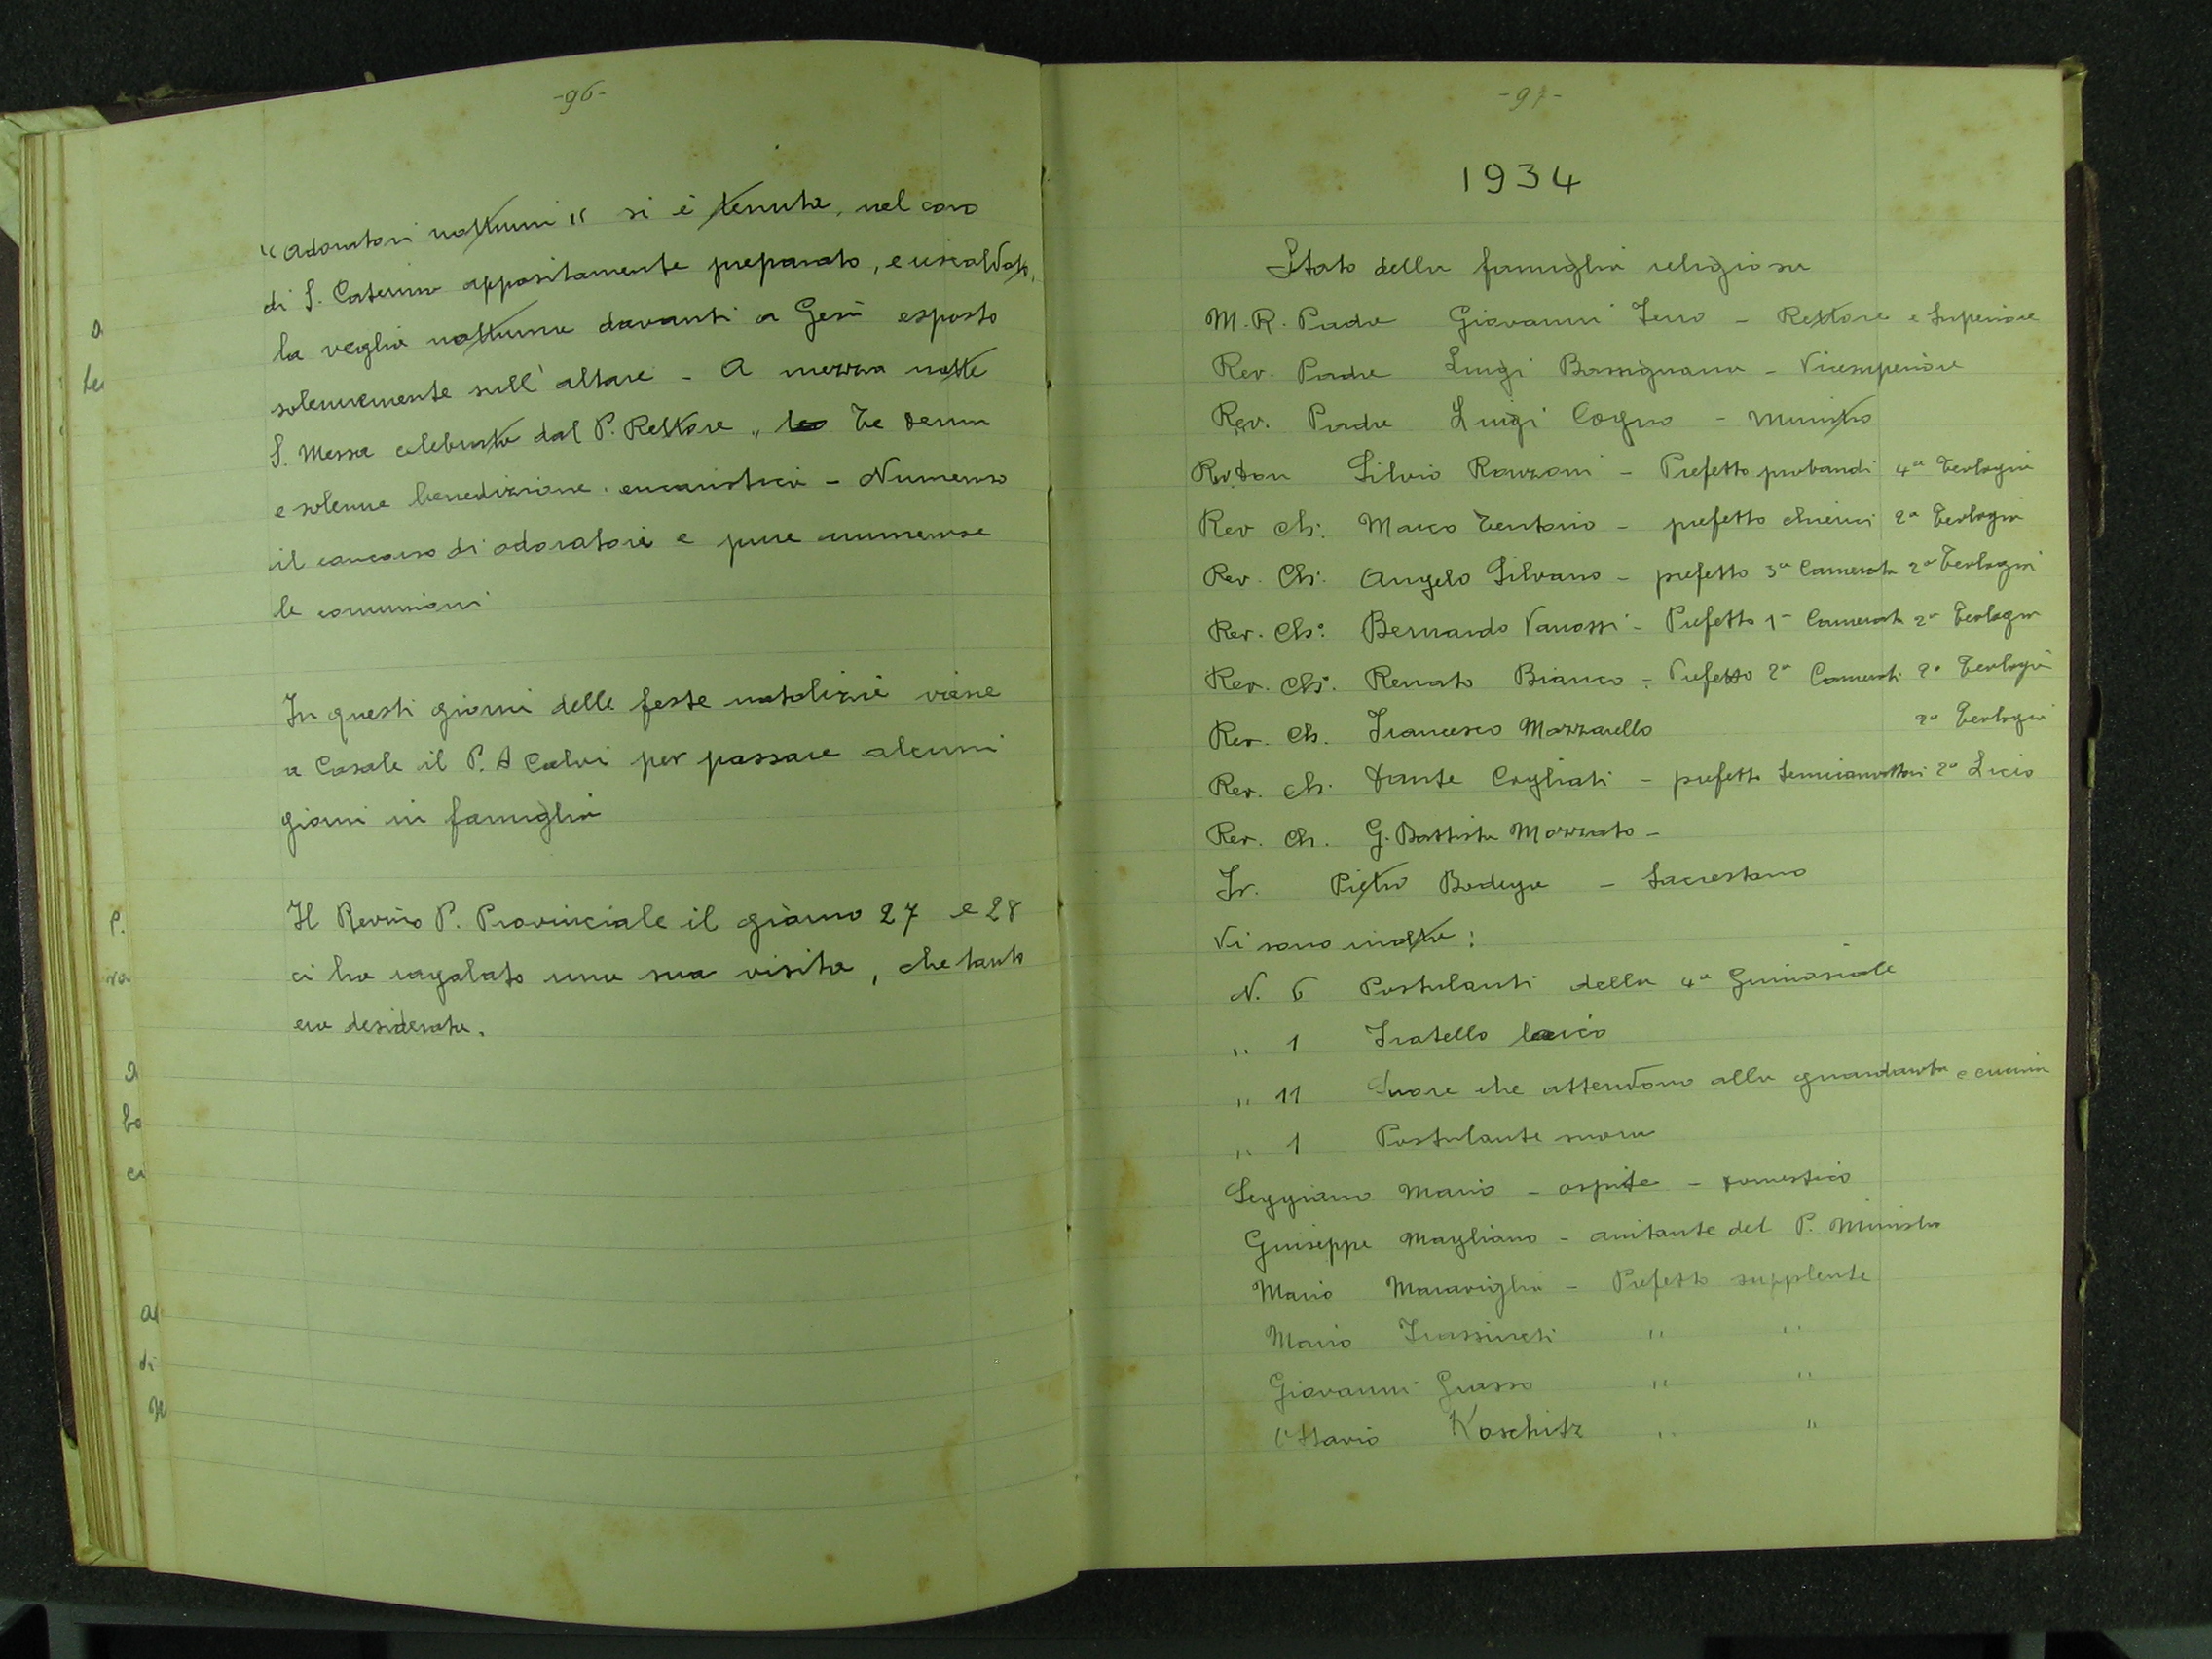 -96-
"Adoratori notturni" si è tenuta, nel coro
di S. Caterina appositamente preparato, e riscaldato,
la veglia notturna davanti a Gesù esposto
solennemente sull'altare - A mezza notte
S. Messa celebrata dal P. Rettore, Te Deum
e solenne benedizione eucaristica - Numeroso
il concorso di adoratori e pure numerose
le comunioni
In questi giorni delle feste natalizie viene
a Casale il P. A Calvi per passare alcuni
giorni in famiglia
Il Revmo P. Provinciale il giorno 27 e 28
ci ha regalato una sua visita, che tanto
era desiderata.
-97-
1934
Stato della famiglia religiosa
M.R. Padre Giovanni Ferro - Rettore e Superiore
Rev. Padre Luigi Bassignana - Vicesuperiore
Rev. Padre Luigi Cogno - Ministro
Rev. Don Silvio Ranzani - Prefetto probandi 4a Teologia
Rev Ch. Marco Tentorio - prefetto chierici 2a Teologia
Rev. Ch. Angelo Silvano - prefetto 3a Camerata 2a Teologia
Rev. Ch. Bernardo Vanossi - Prefetto 1a Camerata 2a Teologia
Rev. Ch. Renato Bianco - Prefetto 2a Camerata 2a Teologia
Rev. Ch. Francesco Mazzarello 2a Teologia
Rev. Ch. Dante Cogliati - prefetto Semiconvittori 2a Liceo
Rev. Ch. G. Battista Mozzato -
Fr. Pietro Bodega - Sacrestano
Vi sono inoltre:
N. 6 Postulanti della 4a Ginnasiale
" 1 Fratello laico
" 11 Suore che attendono alla guardaroba e cucina
" 1 Postulante suora
Seggiaro Mario - ospite - domestico
Giuseppe Magliano - aiutante del P. Ministro
Mario Maraviglia - Prefetto supplente
Mario Frassineti " "
Giovanni Grasso " "
Ottavio Koschitz " "